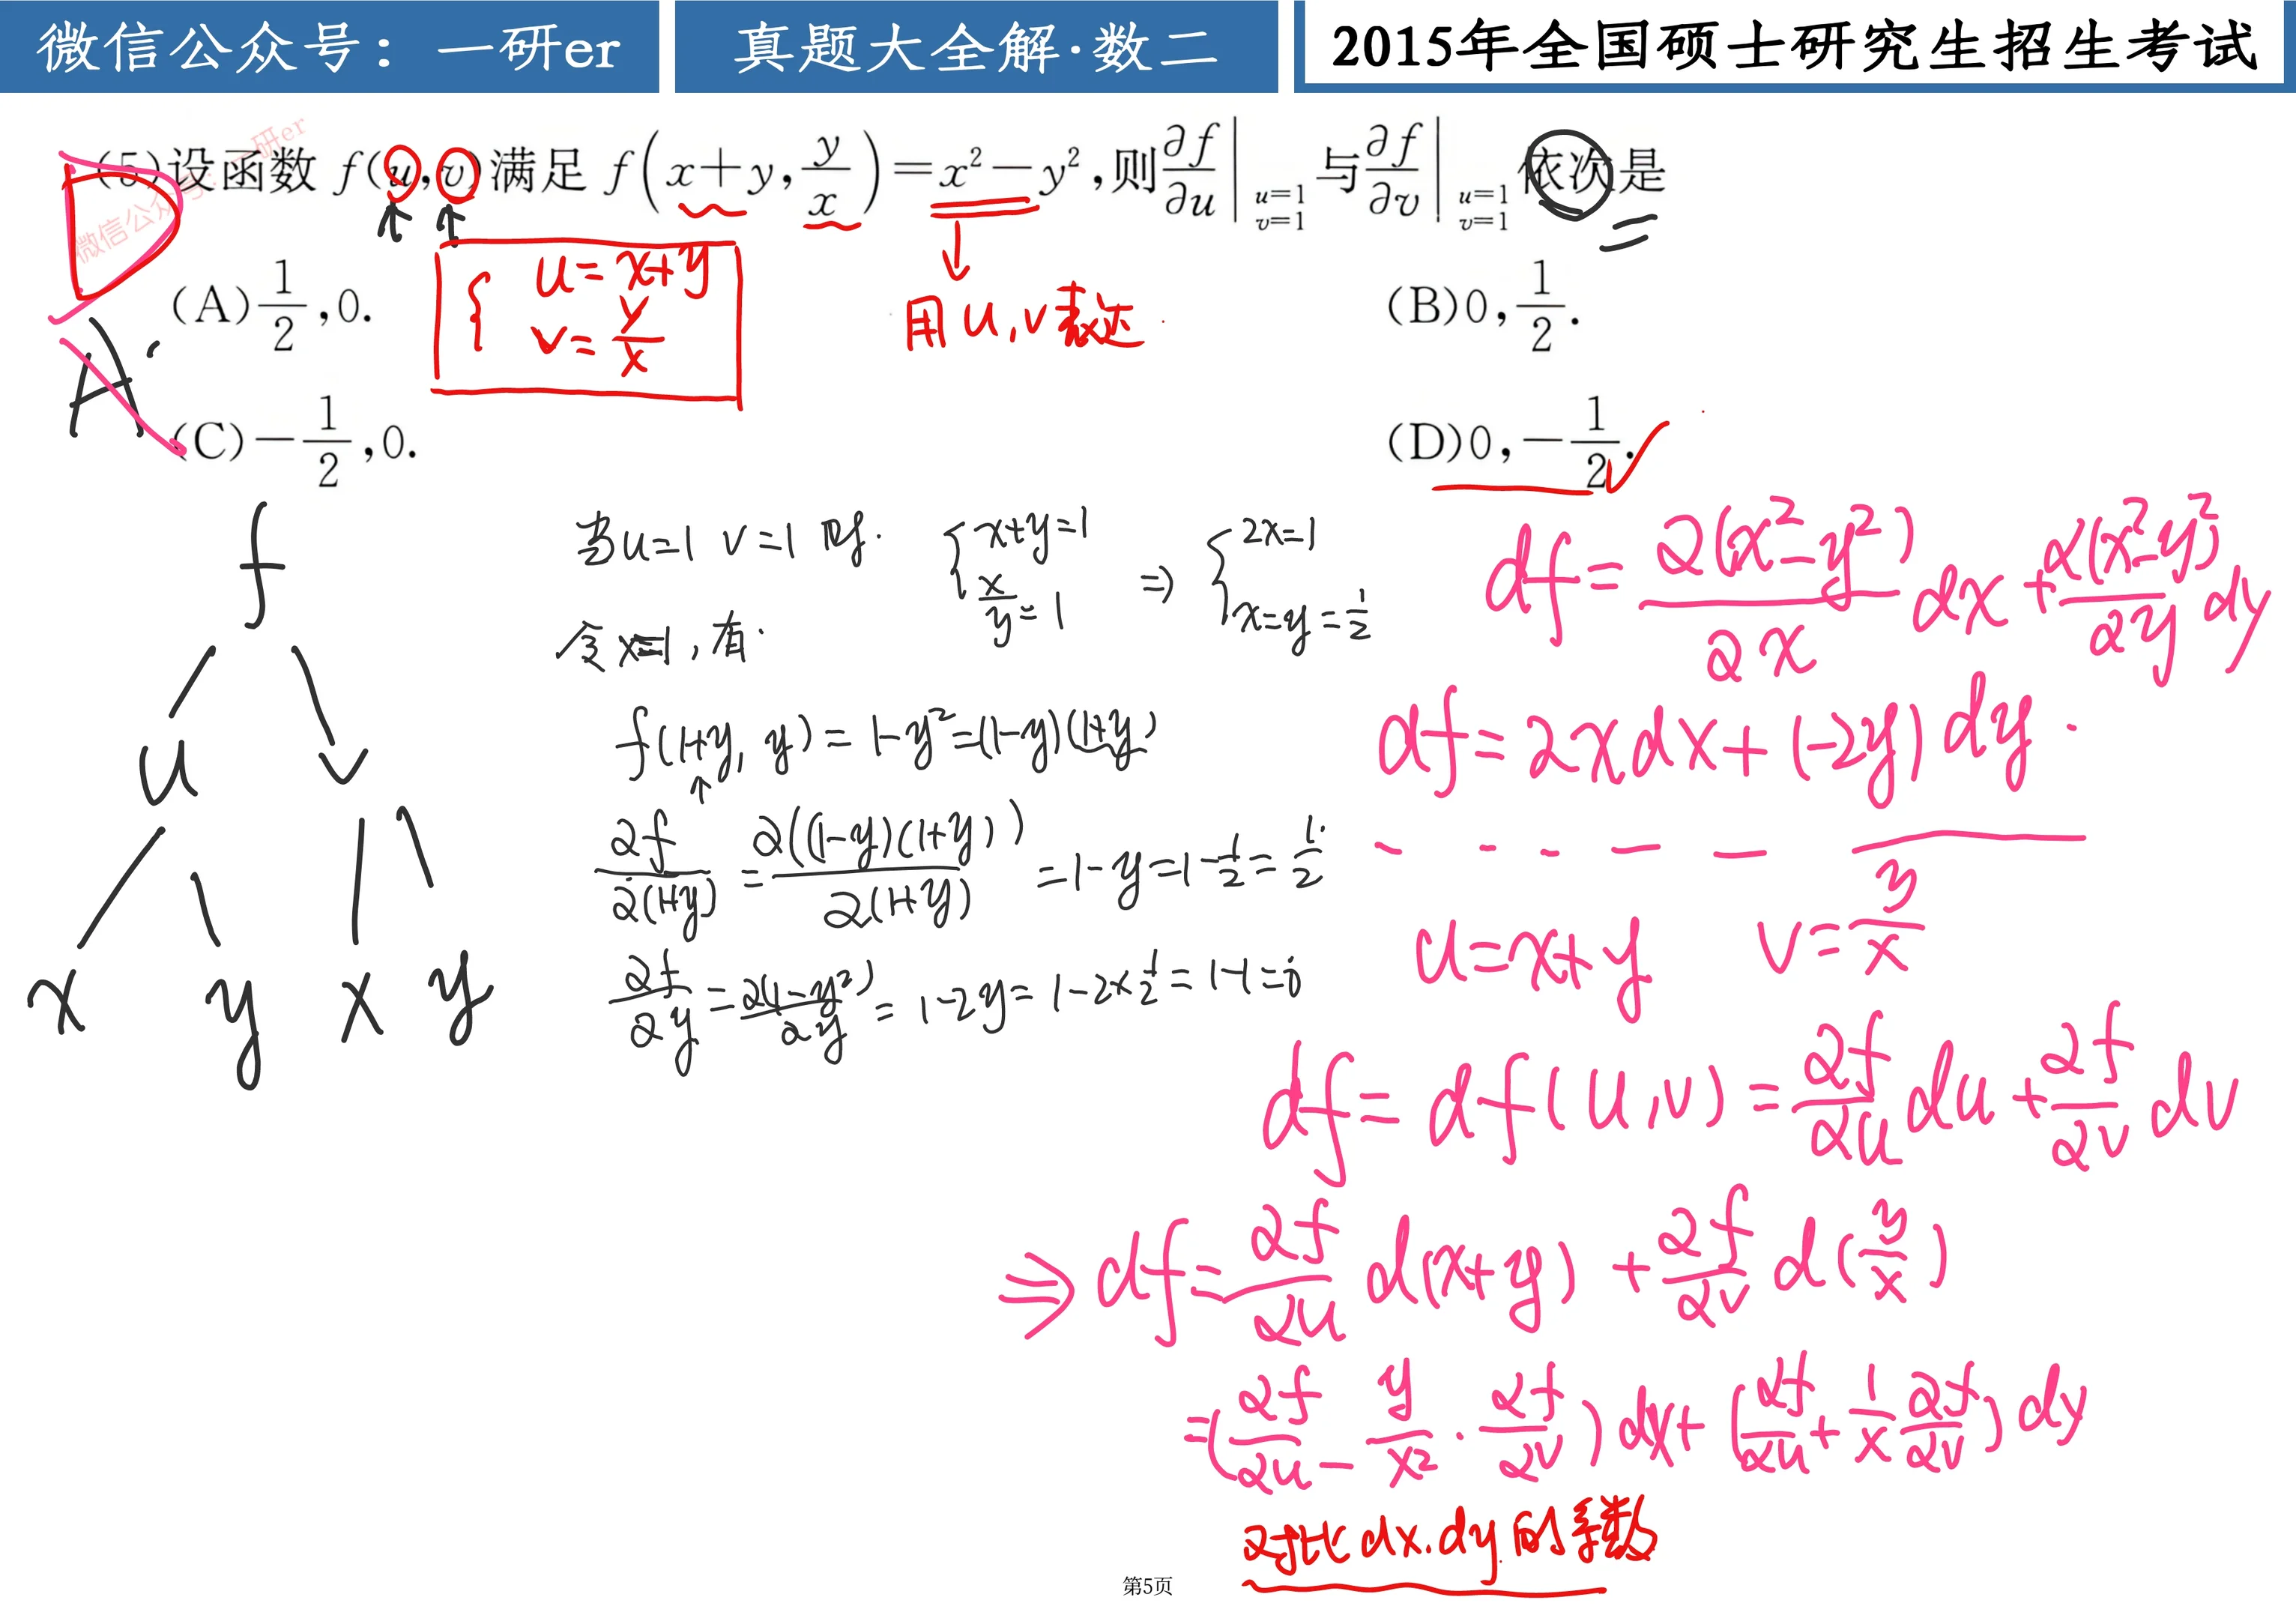 微信公众号：一研er 真题大全解·数二 2015年全国硕士研究生招生考试
微信公众号：一研er
(5)设函数 f(u,v)满足 f(x+y, y/x)=x²−y²,则∂f/∂u|u=1 v=1 与∂f/∂v|u=1 v=1 依次是
{ u=x+y
v=y/x
用u,v表达
(A)1/2,0. (B)0,1/2.
A.
(C)−1/2,0. (D)0,−1/2.
f
u v
x y x y
当u=1 v=1时. { x+y=1 x/y=1 ⇒ { 2x=1 x=y=1/2
令x=1,有.
f(1+y, y)=1−y²=(1−y)(1+y)
∂f/∂(1+y)=∂((1−y)(1+y))/∂(1+y)=1−y=1−1/2=1/2.
∂f/∂y=∂(1−y²)/∂y=1−2y=1−2×1/2=1−1=0
df=∂(x²−y²)/∂x dx+∂(x²−y²)/∂y dy
df=2xdx+(−2y)dy.
u=x+y v=y/x
df=df(u,v)=∂f/∂u du+∂f/∂v dv
⇒df=∂f/∂u d(x+y)+∂f/∂v d(y/x)
=(∂f/∂u−y/x²·∂f/∂v)dx+(∂f/∂u+1/x ∂f/∂v)dy
对比dx.dy的系数
第5页